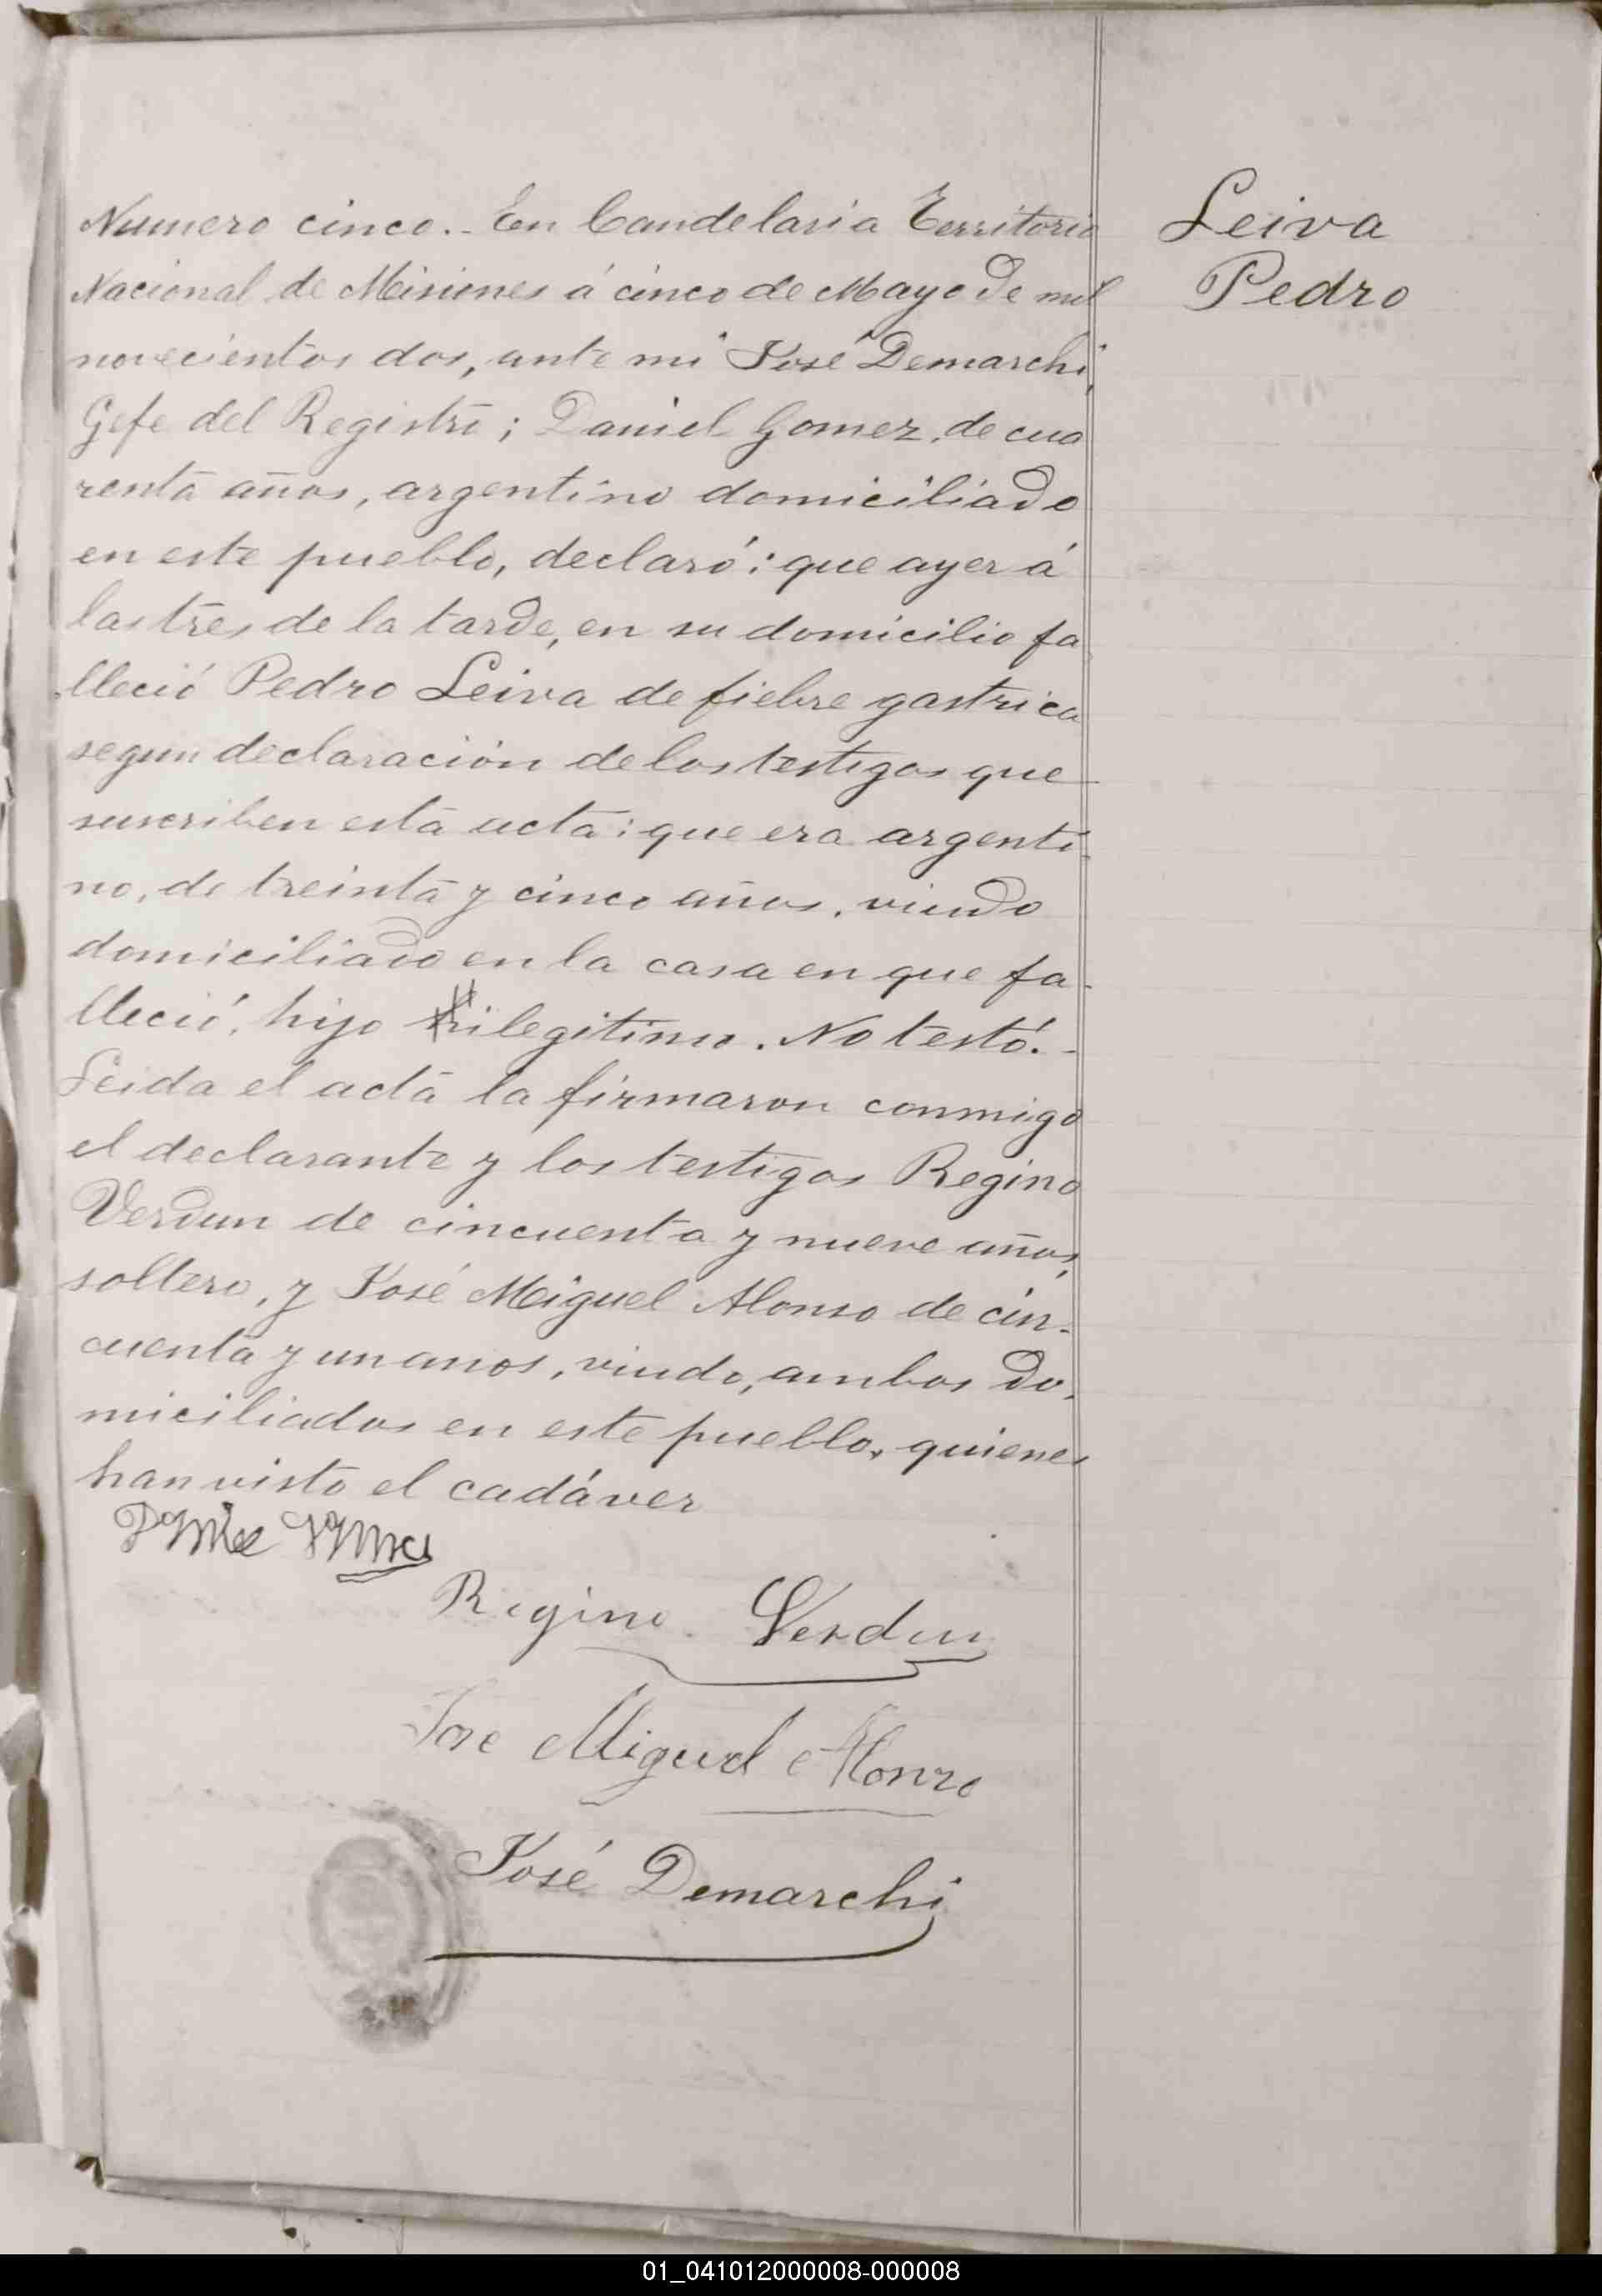 Leiva
Pedro
Numero cinco.- En Candelaria Territorio
Nacional de Misiones á cinco de Mayo de mil
novecientos dos, ante mi José Demarchi,
Gefe del Registro; Daniel Gomez, de cua
renta años, argentino domiciliado
en este pueblo, declaró: que ayer á
las tres de la tarde, en su domicilio fa
lleció Pedro Leiva de fiebre gastrica
segun declaración de los testigos que
suscriben esta acta: que era argenti
no, de treinta y cinco años, viudo
domiciliado en la casa en que fa-
lleció, hijo ilegitimo. No testó.-
Leida el acta la firmaron conmigo
el declarante y los testigos Regino
Verdun de cincuenta y nueve años,
soltero, y José Miguel Alonso de cin-
cuenta y un anos, viudo, ambos do-
miciliados en este pueblo, quienes
han visto el cadáver
Regino Verdun
Jose Miguel Alonzo
José Demarchi
01_041012000008-000008